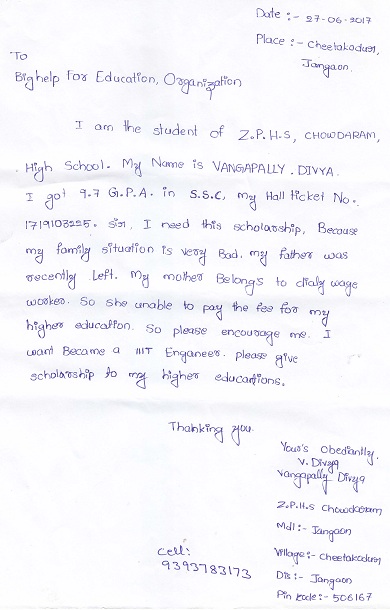 Date :- 27-06-2017
Place :- Cheetakodur,
Jangaon.
To
Bighelp For Education, Organization
I am the student of Z.P.H.S, CHOWDARAM,
High School. My Name is VANGAPALLY . DIVYA.
I got 9.7 G.P.A. in S.S.C, my Hall ticket No.
1719103225. sir, I need this scholarship, Because
my family situation is very Bad. my father was
recently Left. My mother Belong's to dialy wage
worker. So she unable to pay the fee for my
higher education. So please encourage me. I
want Became a IIIT Enganeer. please give
scholarship to my higher educations.
Thanking you.
Your's Obediantly.
V. Divya
Vangapally Divya
Z.P.H.S Chowdaram
Mdl :- Jangaon
Village :- Cheetakodur
Dis :- Jangaon
Pin kode :- 506167
Cell:
9393783173